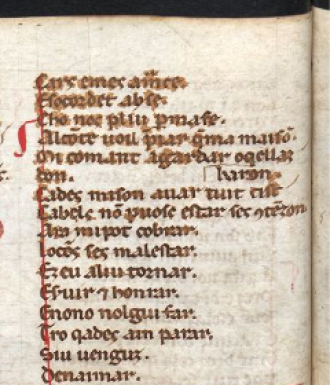 Cars emes amice.
Esocordet ab se.
Cho noe pliu pmase.
Al cōte uoil pīar qma maisō.
On comant agardar oqellaz
don. baron
Cades mison auar tuit cist
Cabele nō puose estar ses ꝯtēzon
Ara mi pot cobrar.
Locōs ses malestar.
Ez eu aliu tornar.
Esuir ⁊ honrar.
Enono nolgui far.
Tro qades am parar.
Siu uenguz.
Denarmar.